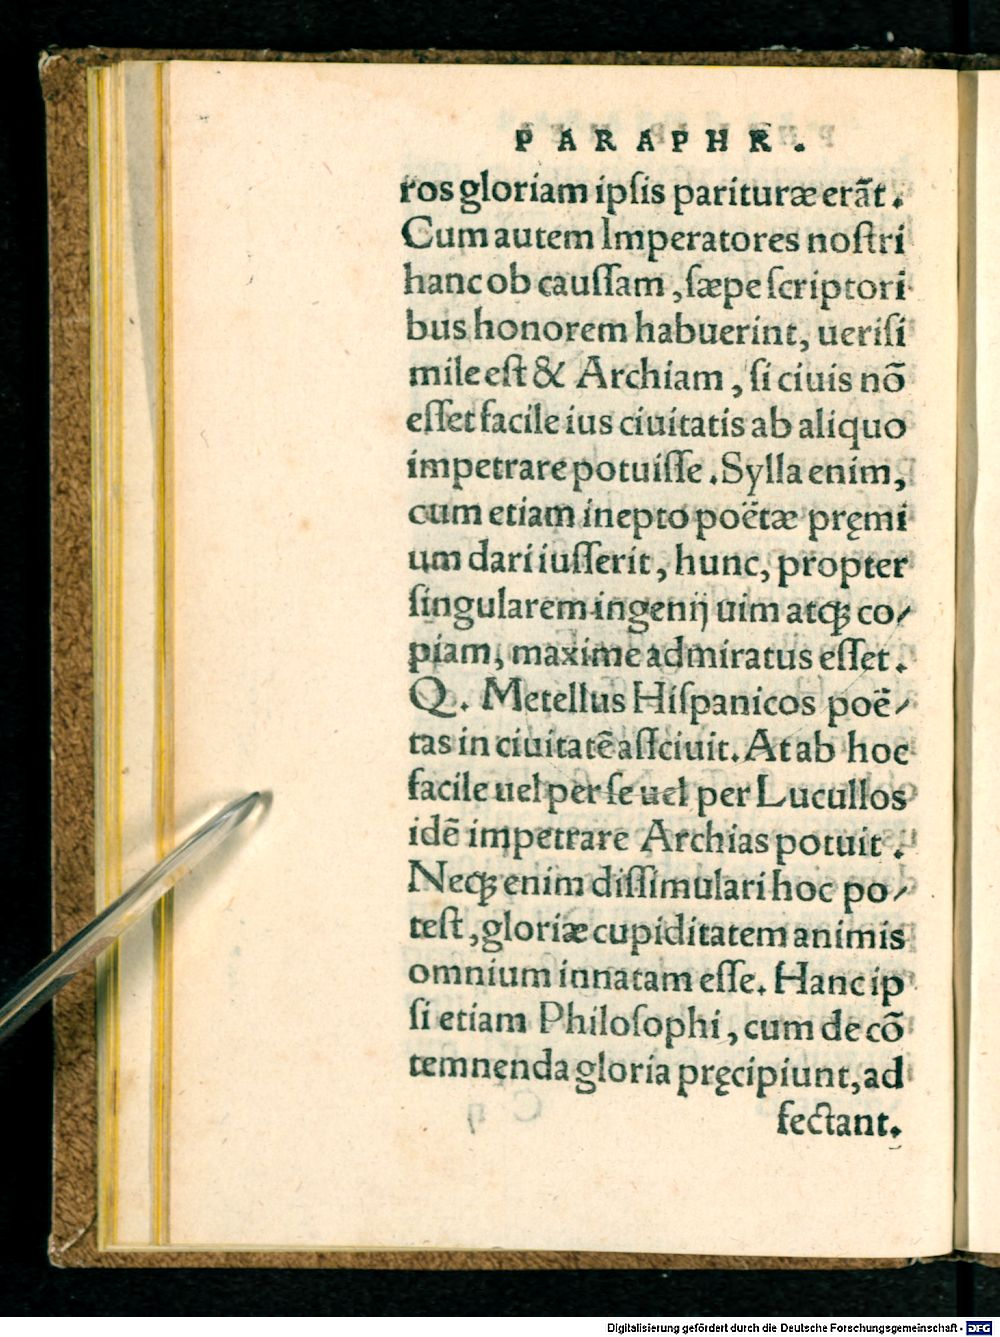 PARAPHR.
ros gloriam ipſis parituræ erãt.
Cum autem Imperatores noſtri
hanc ob cauſſam, ſæpe ſcriptori
bus honorem habuerint, ueriſi
mile eſt & Archiam, ſi ciuis nõ
eſſet facile ius ciuitatis ab aliquo
impetrare potuiſſe. Sylla enim,
cum etiam inepto poëtæ pręmi
um dari iuſſerit, hunc, propter
ſingularem ingenij uim atqꝫ co/
piam, maxime admiratus eſſet.
Q. Metellus Hiſpanicos poë/
tas in ciuitatẽ aſſciuit. At ab hoc
facile uel per ſe uel per Lucullos
idẽ impetrare Archias potuit.
Neqꝫ enim diſſimulari hoc po/
teſt, gloriæ cupiditatem animis
omnium innatam eſſe. Hanc ip
ſi etiam Philoſophi, cum de cõ
temnenda gloria pręcipiunt, ad
fectant.
Digitalisierung gefördert durch die Deutsche Forschungsgemeinschaft - DFG